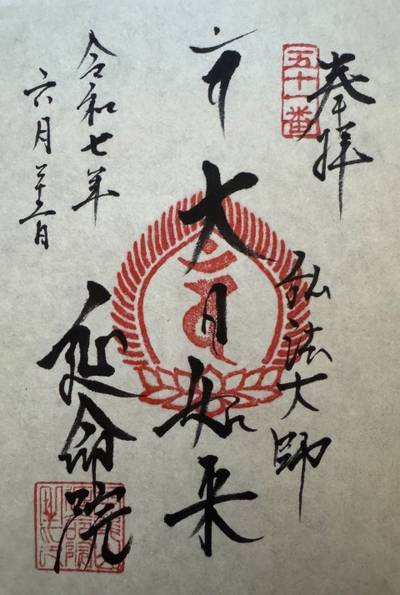 奉拝
五十一番
弘法大師
大日如来
令和七年
六月 日
延命院